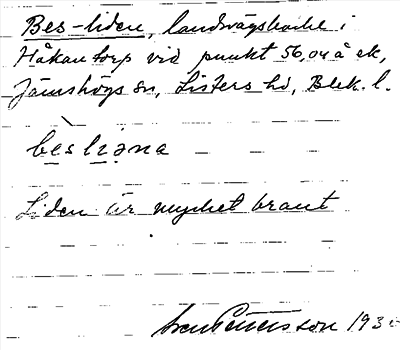 Bes-liden, landsvägsbacke i
Håkantorp vid punkt 56,04 å ek,
Jämshögs sn, Listers hd, Blek. l.
bèsliəna
Liden är mycket brant
Sven Petersson 193